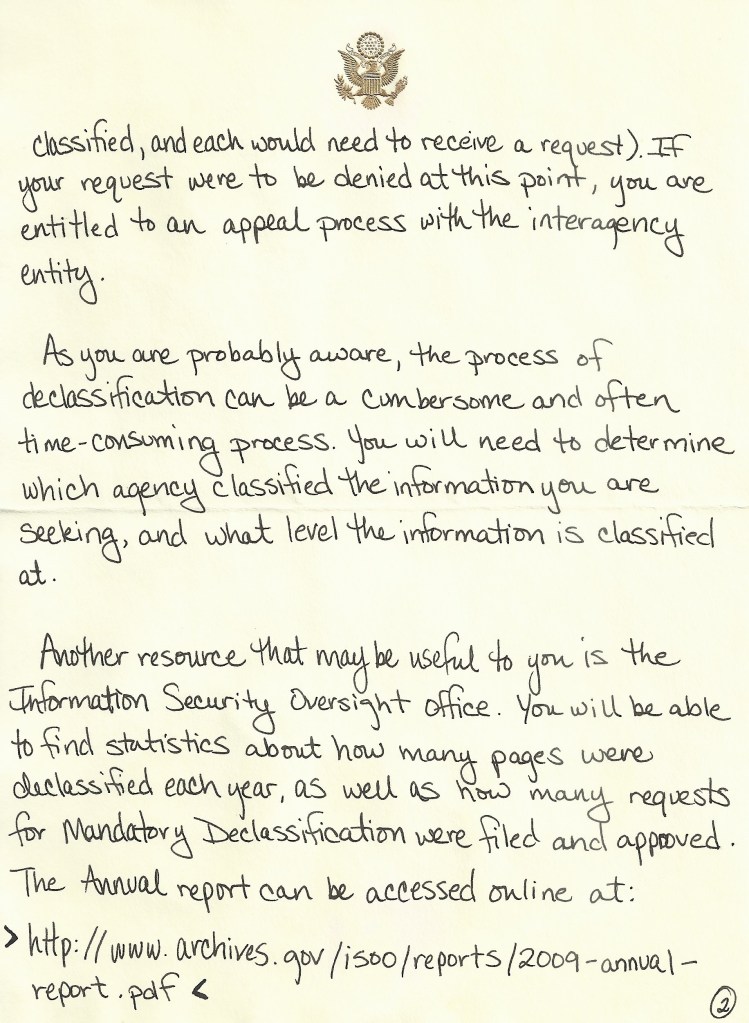 classified, and each would need to receive a request). If
your request were to be denied at this point, you are
entitled to an appeal process with the interagency
entity.
As you are probably aware, the process of
declassification can be a cumbersome and often
time-consuming process. You will need to determine
which agency classified the information you are
seeking, and what level the information is classified
at.
Another resource that may be useful to you is the
Information Security Oversight office. You will be able
to find statistics about how many pages were
declassified each year, as well as how many requests
for Mandatory Declassification were filed and approved.
The Annual report can be accessed online at:
> http://www.archives.gov/isoo/reports/2009-annual-
report.pdf <
2